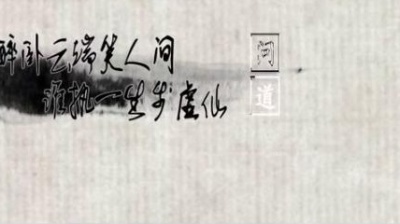 醉卧云端笑人间
谁执一生步虚仙
问
道